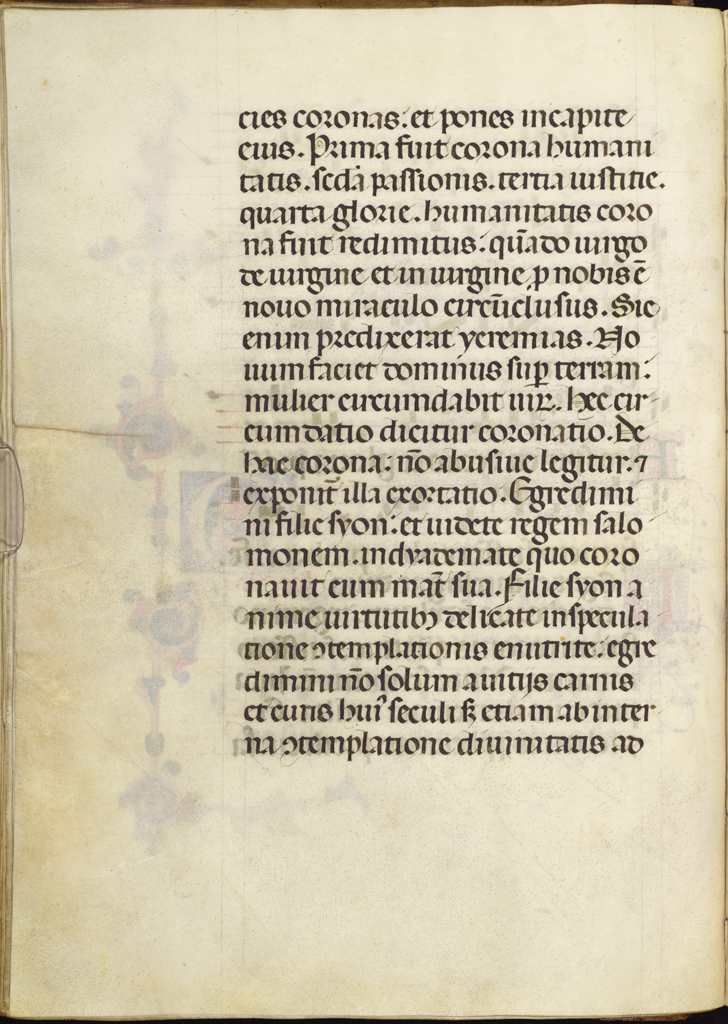 cies coronas: et pones in capite
eius. Prima fuit corona humani
tatis. scdā passionis. tertia iustitie.
quarta glorie. humanitatis coro
na fuit redimitus: quādo uirgo
de uirgine et in uirgine p̱ nobis ē
nouo miraculo circūclusus. Sic
enim predixerat yeremias. No
uum faciet dominus sup̱ terram:
mulier circumdabit uir. hec cir
cumdatio dicitur coronatio. De
hac corona: nō abusiue legitur. ⁊
exponit̄ illa exortatio. Egredimi
ni filie syon: et uidete regem salo
monem. in dyademate quo coro
nauit eum mat̄ sua. Filie syon a
nime uirtutibꝫ delicate in specula
tione ꝯtemplationis enutrite: egre
dimini nō solum a uitijs carnis
et curis huiꝰ seculi ß etiam ab inter
na ꝯtemplatione diuinitatis ad